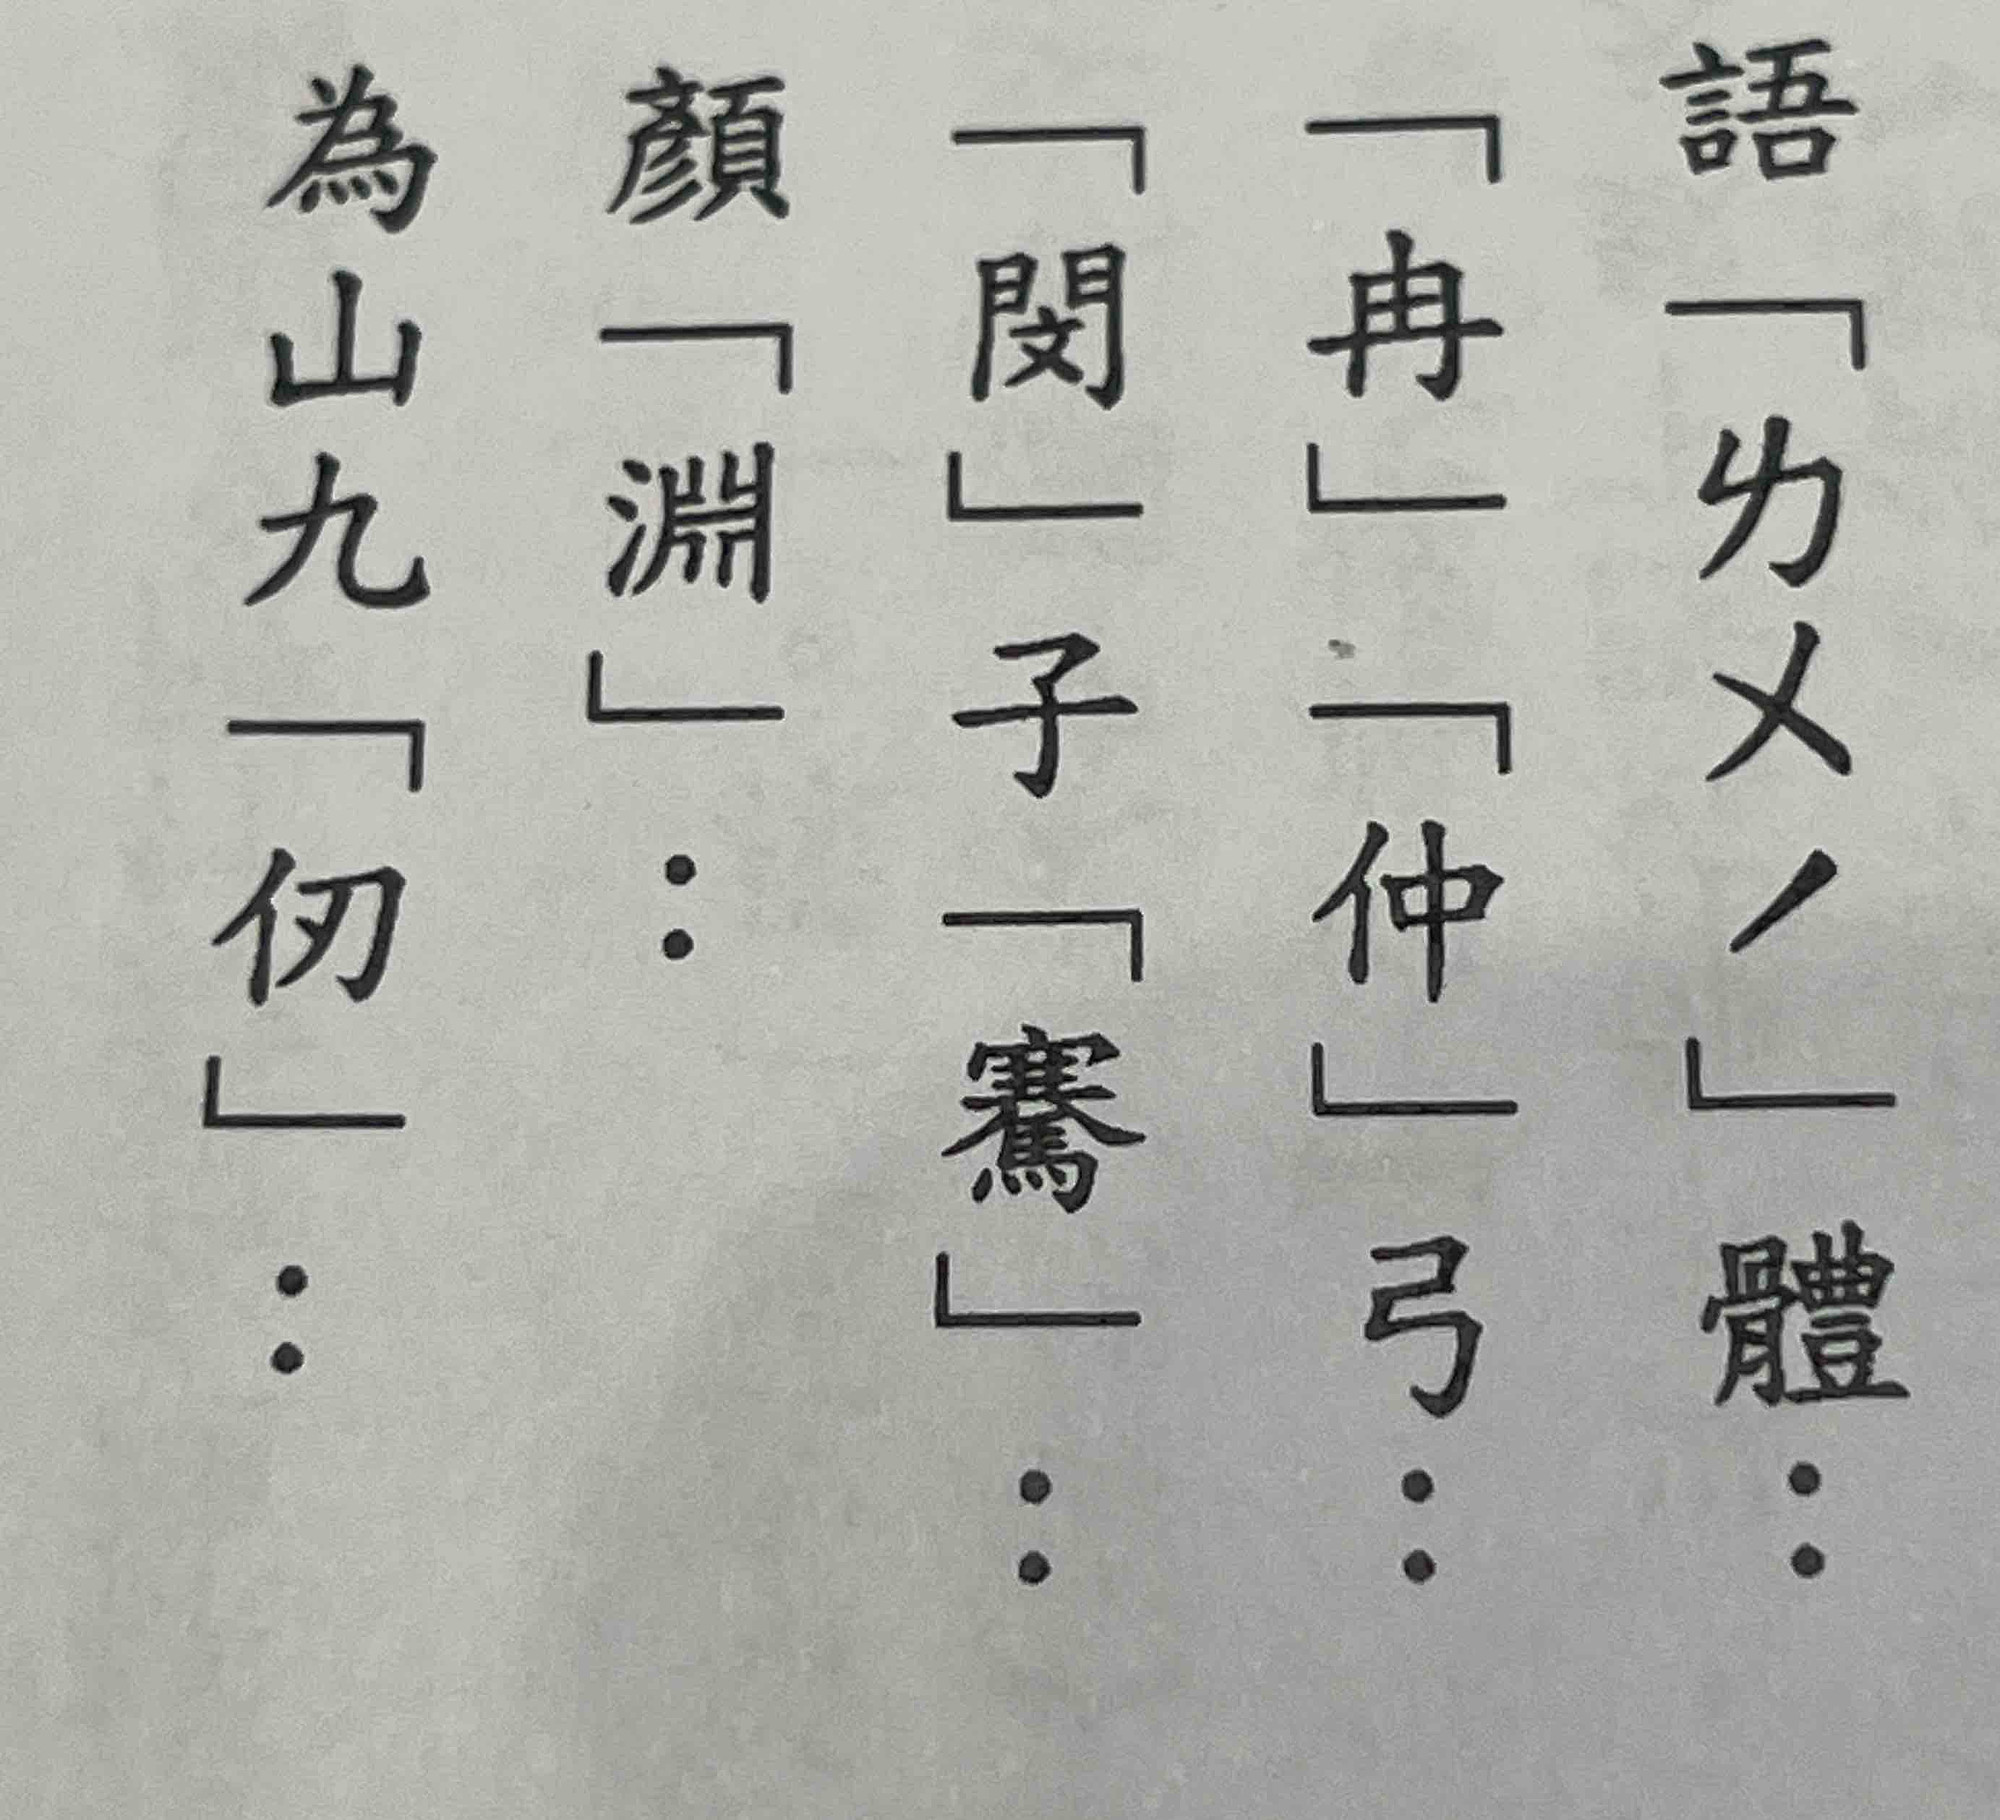 語「ㄌㄨˊ」體：
「冉」「仲」弓：
「閔」子「騫」：
顏「淵」：
為山九「仞」：